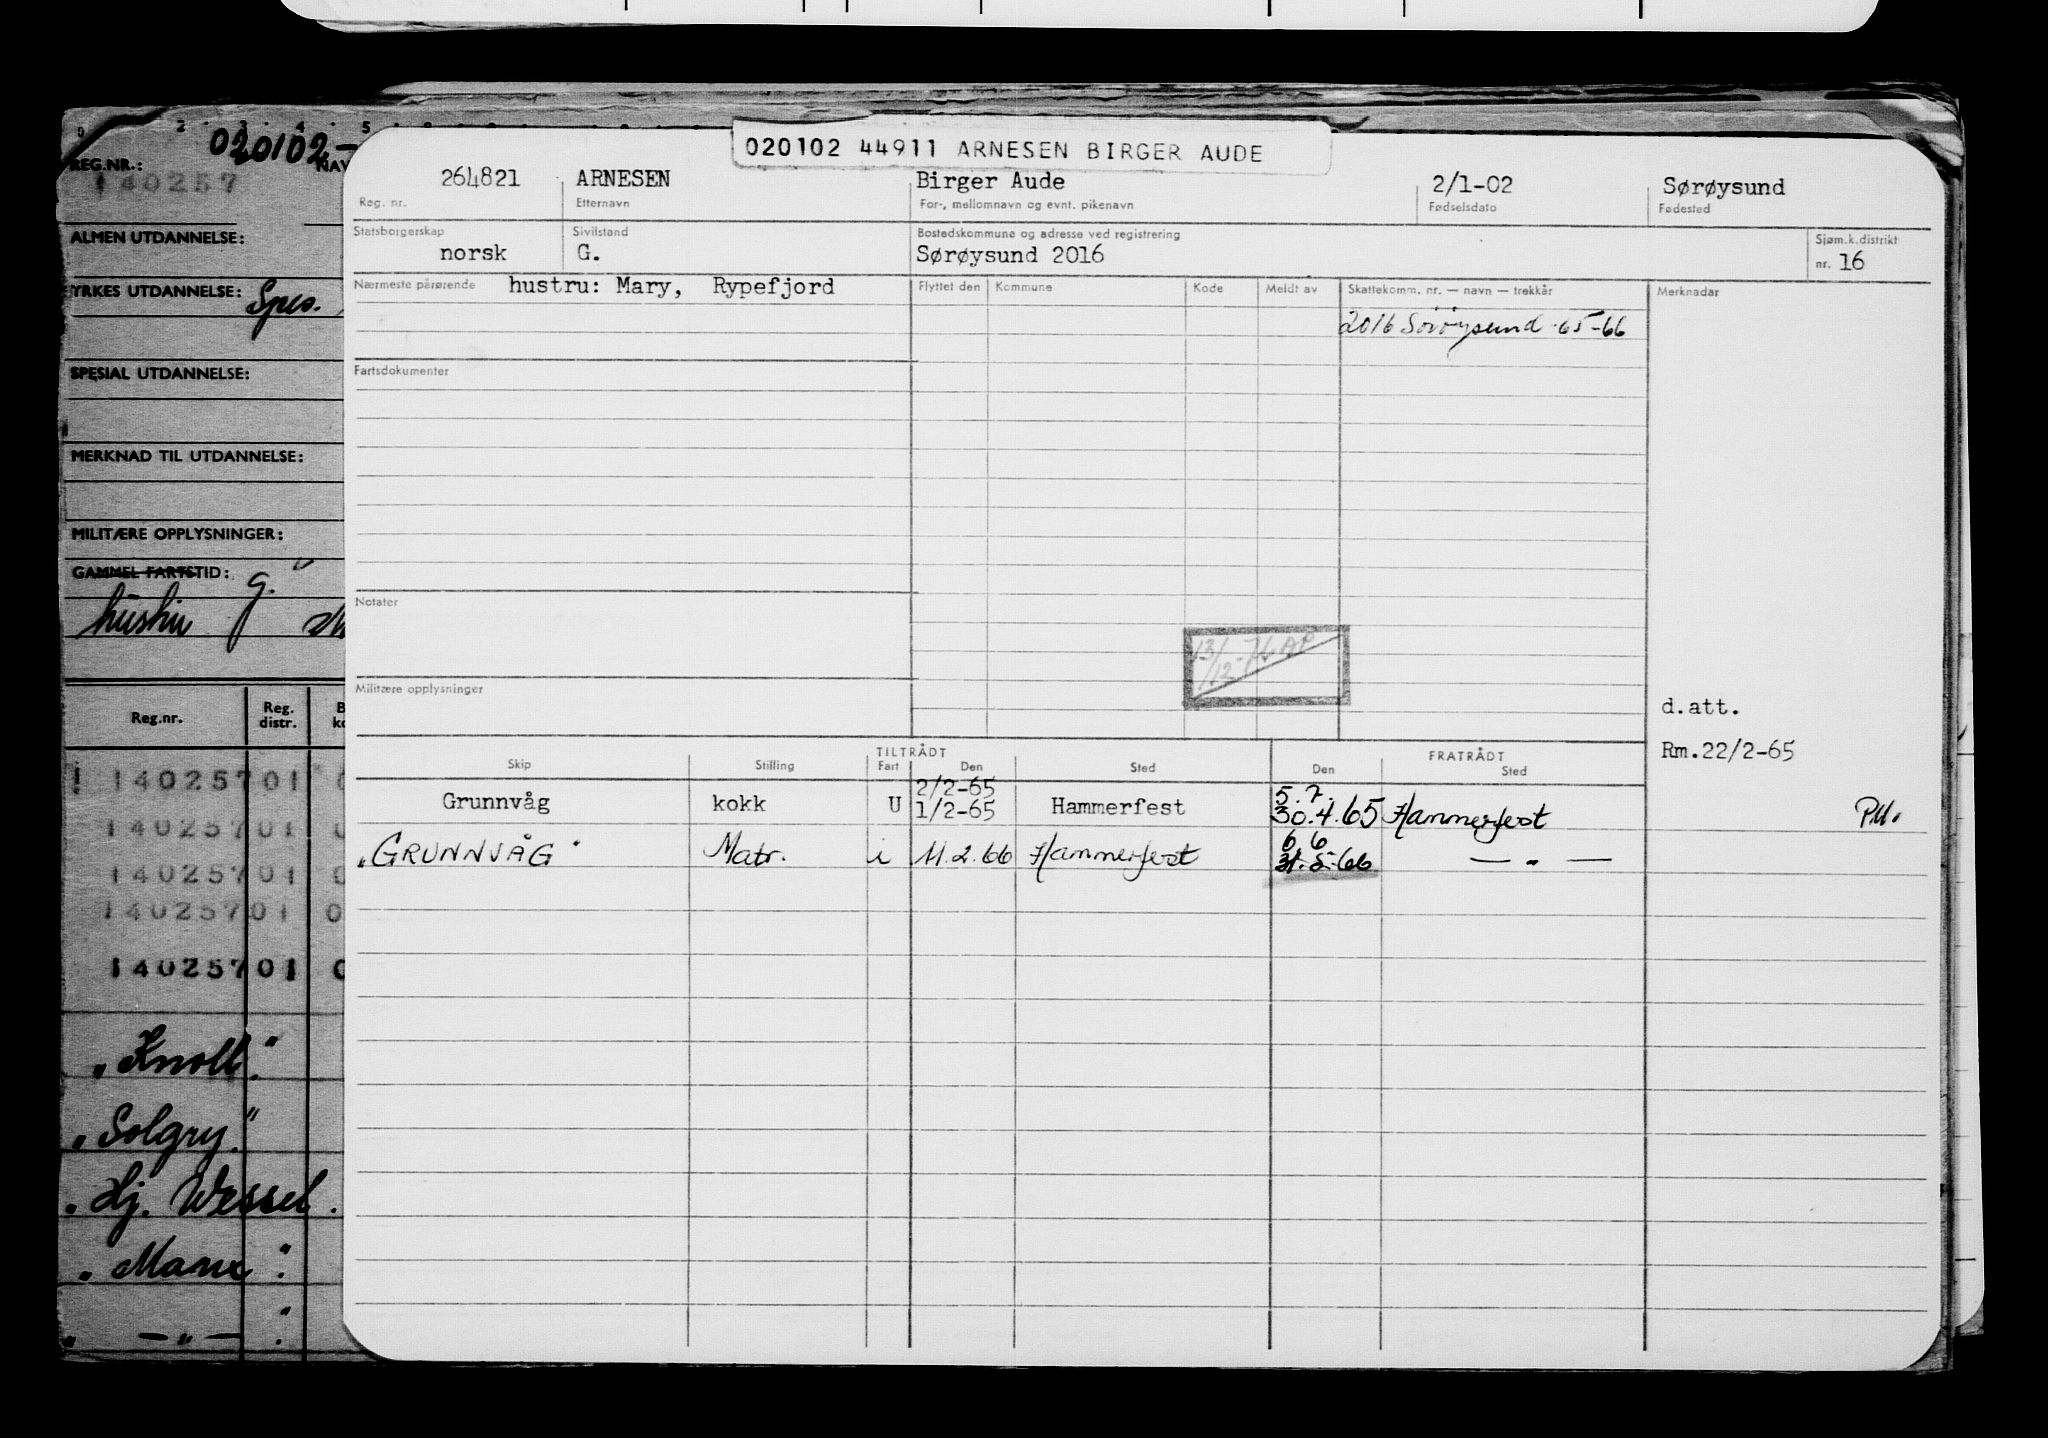 020102 44911 ARNESEN BIRGER AUDE
264821 ARNESEN Birger Aude 2/1-02 Sørøysund
Reg. nr. Etternavn For-, mellomnavn og evnt. pikenavn Fødselsdato Fødested
Statsborgerskap Sivilstand Bostedskommune og adresse ved registrering Sjøm.k.distrikt
norsk G. Sørøysund 2016 nr. 16
Nærmeste pårørende hustru: Mary, Rypefjord Flyttet den Kommune Kode Meldt av Skattekomm. nr. — navn — trekkår Merknader
2016 Sörøysund 65-66
Fartsdokumenter
Notater
13/12-76 AP
Militære opplysninger
d.att.
Rm.22/2-65
TILTRÅDT FRATRÅDT
Skip Stilling Fart Den Sted Den Sted
2/2-65 5.7.
Grunnvåg kokk U 1/2-65 Hammerfest 30.4.65 Hammerfest PM.
6 6
"GRUNNVÅG" Matr. i 11.2.66 Hammerfest 31.5.66 — " —
020102-
REG.NR.: NAV
140257
ALMEN UTDANNELSE:
YRKES UTDANNELSE: Spes.
SPESIAL UTDANNELSE:
MERKNAD TIL UTDANNELSE:
MILITÆRE OPPLYSNINGER:
GAMMEL FARTSTID: g.
hustru
Reg.nr. Reg. distr.
140257 01 0
140257 01 0
140257 01 0
140257 01 0
140257 01 0
"Knoll"
"Solgry"
"Hj. Wessel
"Manx"
" — " — "